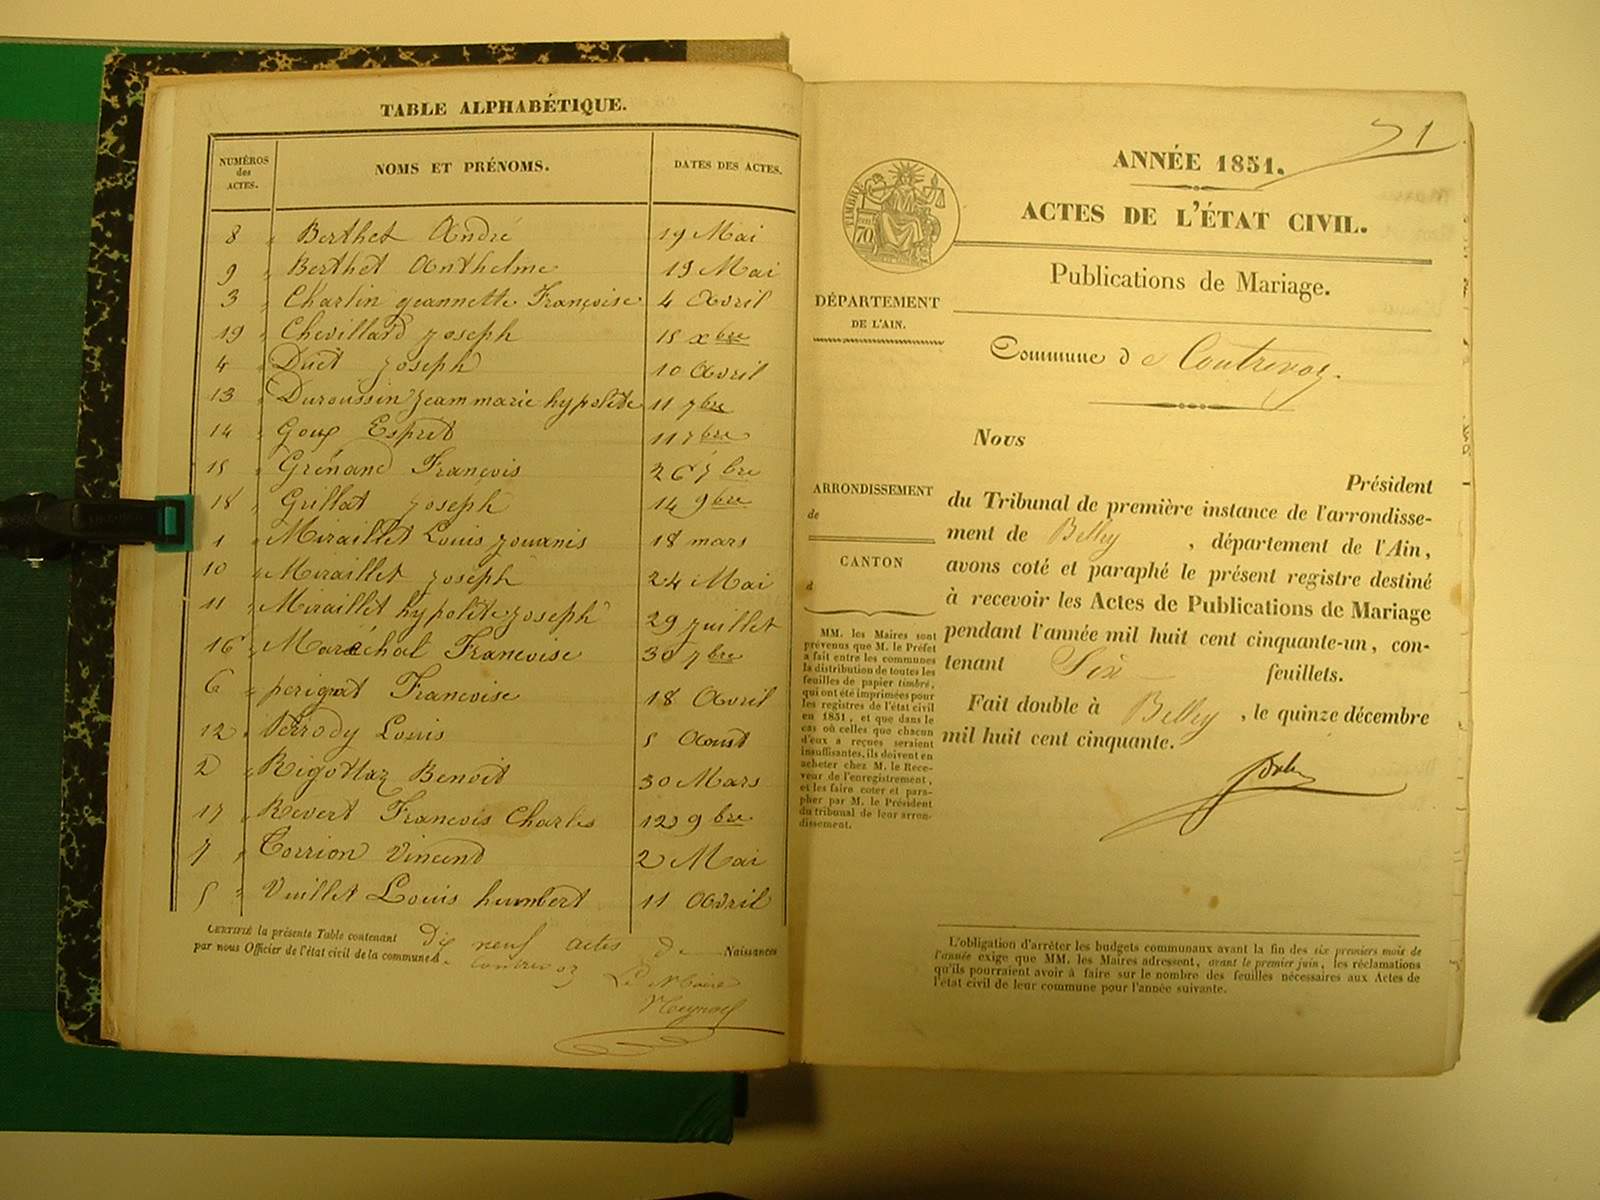 TABLE ALPHABÉTIQUE.
NUMÉROS
des
ACTES.
NOMS ET PRÉNOMS.
DATES DES ACTES.
8 Berthet André 19 Mai
9 Berthet Anthelme 19 Mai
3 Charlin Jeannette Françoise 4 Avril
19 Chevillard Joseph 15 xbre
4 Duet Joseph 10 Avril
13 Duroussin Jean marie hypolite 11 7bre
14 Goux Esprit 11 7bre
15 Grénand François 26 7bre
18 Grillat Joseph 14 9bre
1 Miraillet Louis Jouanis 18 mars
10 Miraillet Joseph 24 Mai
11 Miraillet hypolite Joseph 29 Juillet
16 Maréchal Francoise 30 7bre
6 perignat Francoise 18 Avril
12 Perrody Louis 5 Aoust
2 Rigottaz Benoit 30 Mars
17 Revert Francois Charles 12 9bre
7 Torrion Vincend 2 Mai
5 Vuillet Louis humbert 11 Avril
CERTIFIÉ la présente Table contenant dix neuf actes de Naissances
par nous Officier de l'état civil de la commune de Contrevoz
Le Maire
71
ANNÉE 1851.
ACTES DE L'ÉTAT CIVIL.
Publications de Mariage.
TIMBRE
70
DÉPARTEMENT
DE L'AIN.
Commune de Contrevoz.
ARRONDISSEMENT
de
CANTON
d
MM. les Maires sont
prévenus que M. le Préfet
a fait entre les communes
la distribution de toutes les
feuilles de papier timbré,
qui ont été imprimées pour
les registres de l'état civil
en 1851, et que dans le
cas où celles que chacun
d'eux a reçues seraient
insuffisantes, ils doivent en
acheter chez M. le Rece-
veur de l'enregistrement,
et les faire coter et para-
pher par M. le Président
du tribunal de leur arron-
dissement.
Nous
Président
du Tribunal de première instance de l'arrondisse-
ment de Belley, département de l'Ain,
avons coté et paraphé le présent registre destiné
à recevoir les Actes de Publications de Mariage
pendant l'année mil huit cent cinquante-un, con-
tenant Six feuillets.
Fait double à Belley, le quinze décembre
mil huit cent cinquante.
L'obligation d'arrêter les budgets communaux avant la fin des six premiers mois de
l'année exige que MM. les Maires adressent, avant le premier juin, les réclamations
qu'ils pourraient avoir à faire sur le nombre des feuilles nécessaires aux Actes de
l'état civil de leur commune pour l'année suivante.